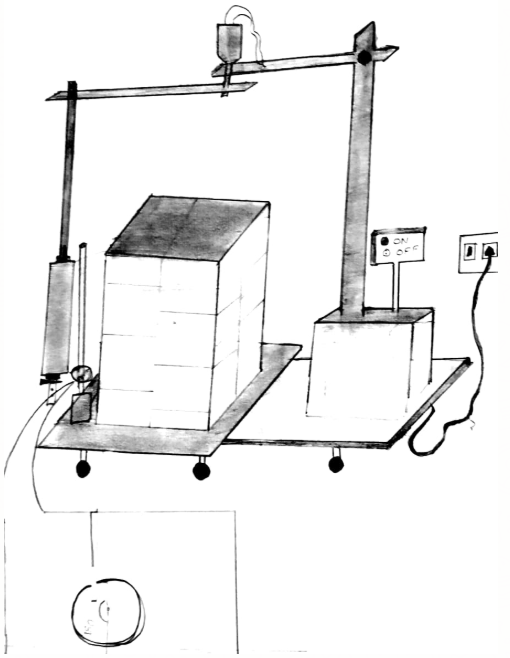 ON
OFF